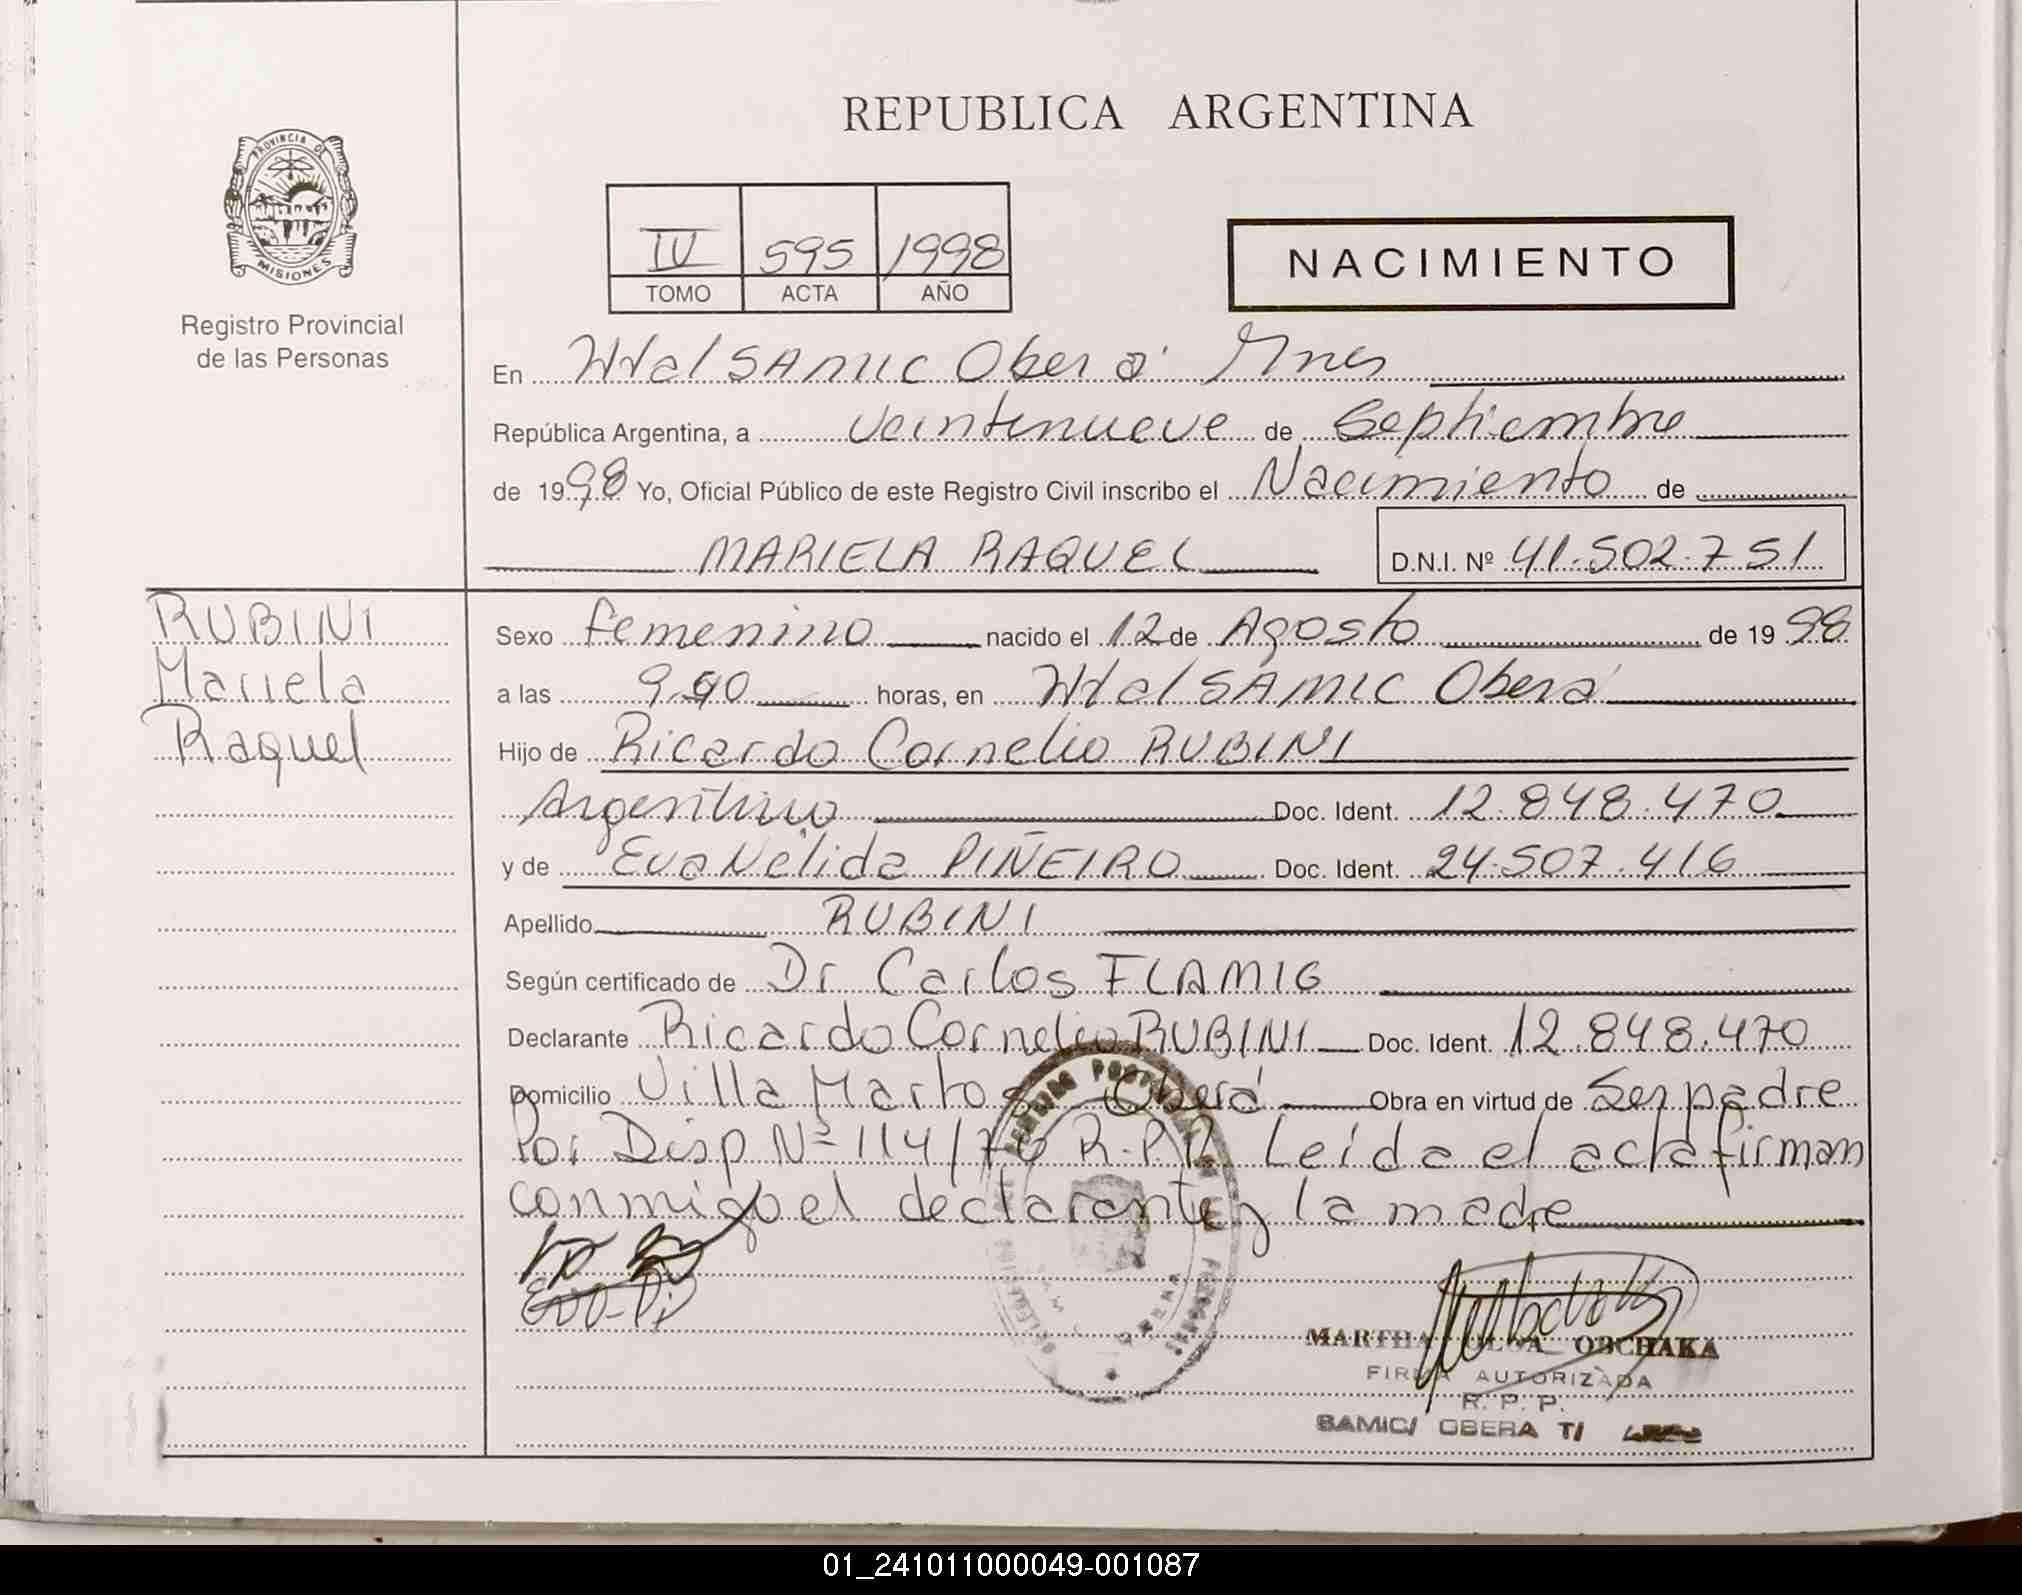 REPUBLICA ARGENTINA
PROVINCIA DE
MISIONES
Registro Provincial
de las Personas
IV 595 1998
TOMO ACTA AÑO
NACIMIENTO
En Htal SAMIC Oberá Mnes
República Argentina, a veintinueve de Septiembre
de 1998 Yo, Oficial Público de este Registro Civil inscribo el Nacimiento de
MARIELA RAQUEL D.N.I. Nº 41.502.751
RUBINI
Mariela
Raquel
Sexo femenino nacido el 12 de Agosto de 1998
a las horas, en Htal SAMIC Oberá
Hijo de Ricardo Cornelio RUBINI
Argentino Doc. Ident. 12.848.470
y de Eva Nélida PIÑEIRO Doc. Ident. 24.507.416
Apellido RUBINI
Según certificado de Dr Carlos FLAMIG
Declarante Ricardo Cornelio RUBINI Doc. Ident. 12.848.470
Domicilio Villa Martos Oberá Obra en virtud de Ser padre
Por Disp Nº 114/76 R.P.P. Leída el acta firman
conmigo el declarante y la madre
MARTHA OLGA OBCHAKA
FIRMA AUTORIZADA
R. P. P.
SAMIC/ OBERA
01_241011000049-001087